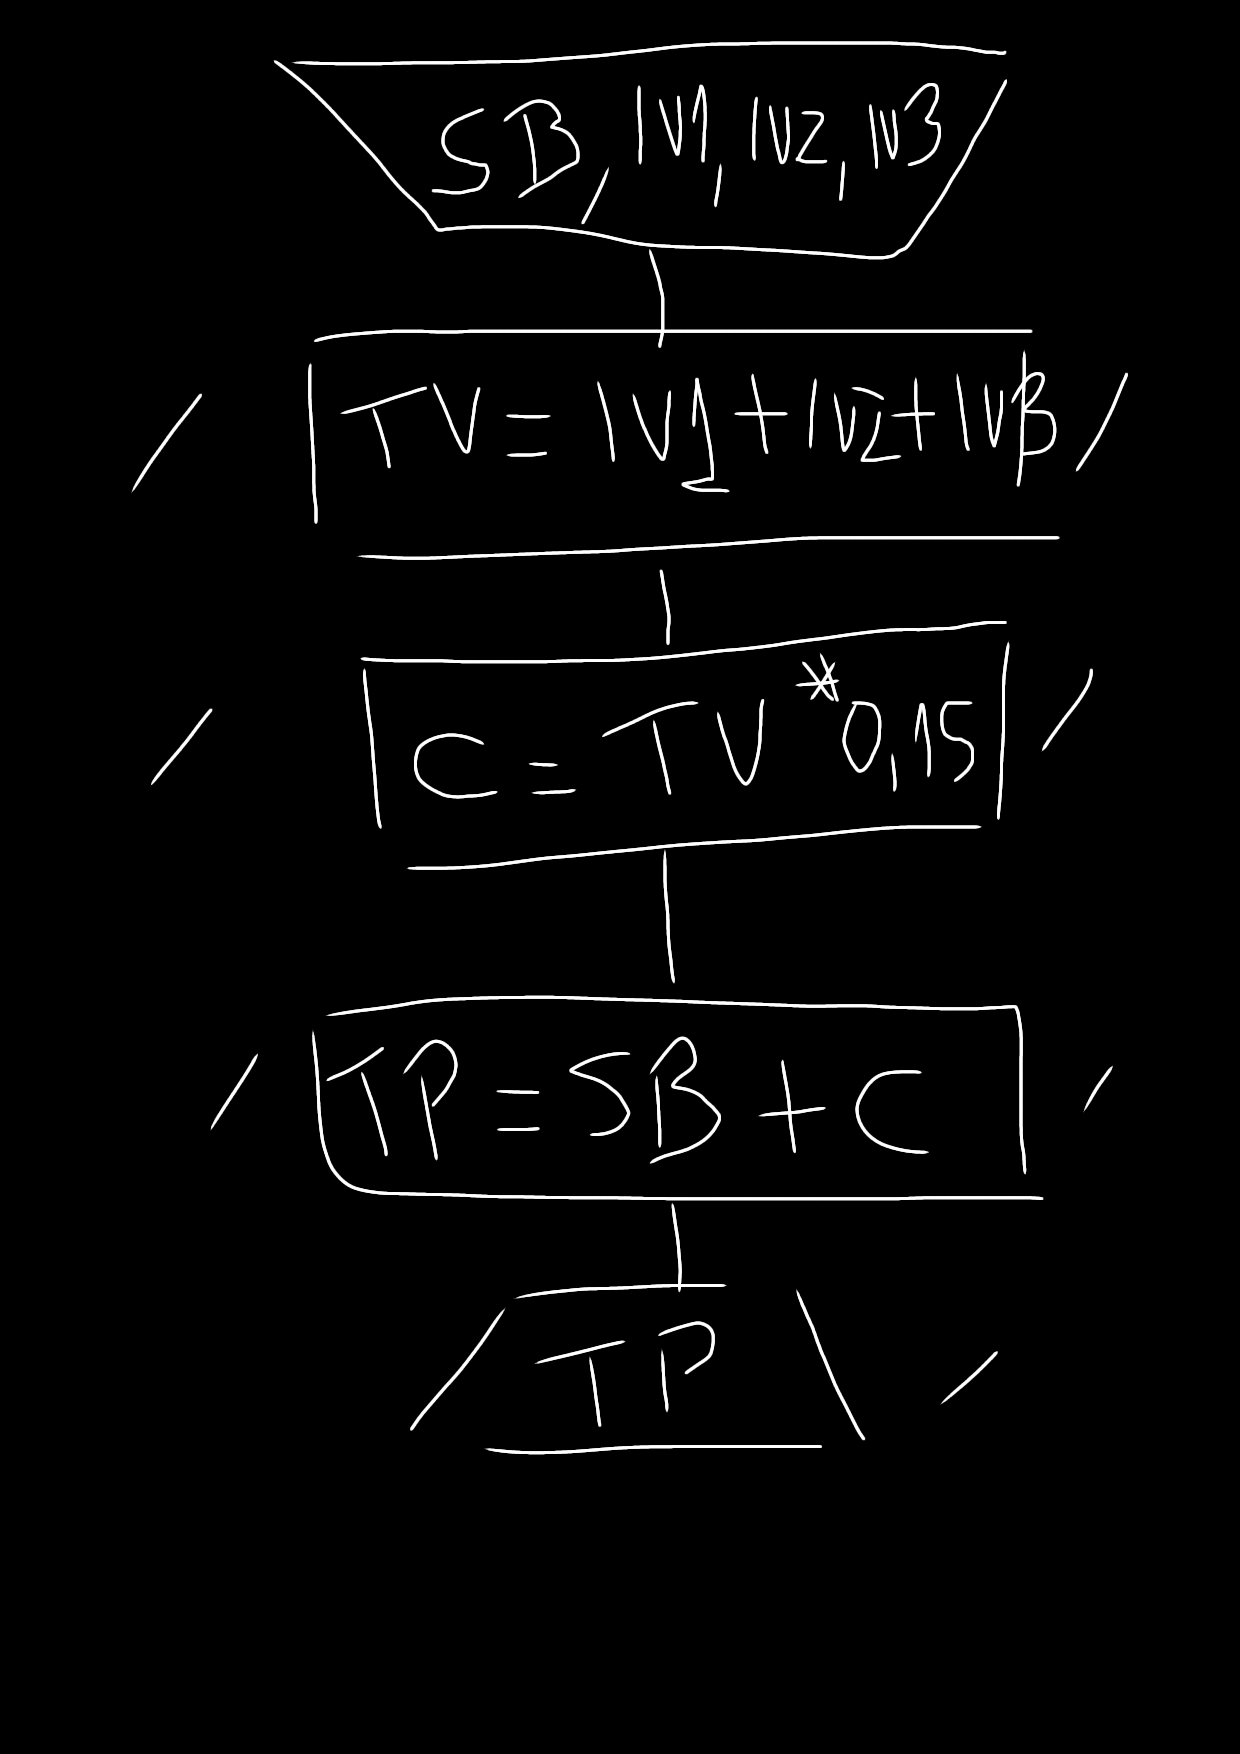 SB, IV1, IV2, IV3
/ TV = IV1 + IV2 + IV3 /
/ C = TV * 0,15 /
/ TP = SB + C /
TP /